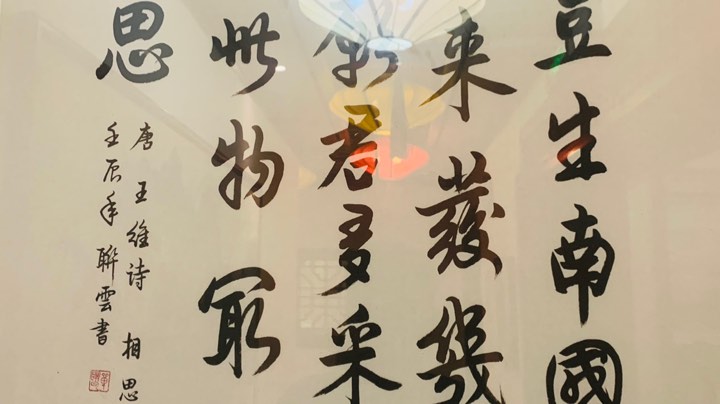 豆生南國
来發幾
君多采
此物冣
思
唐王維诗 相思
壬辰年聯雲書